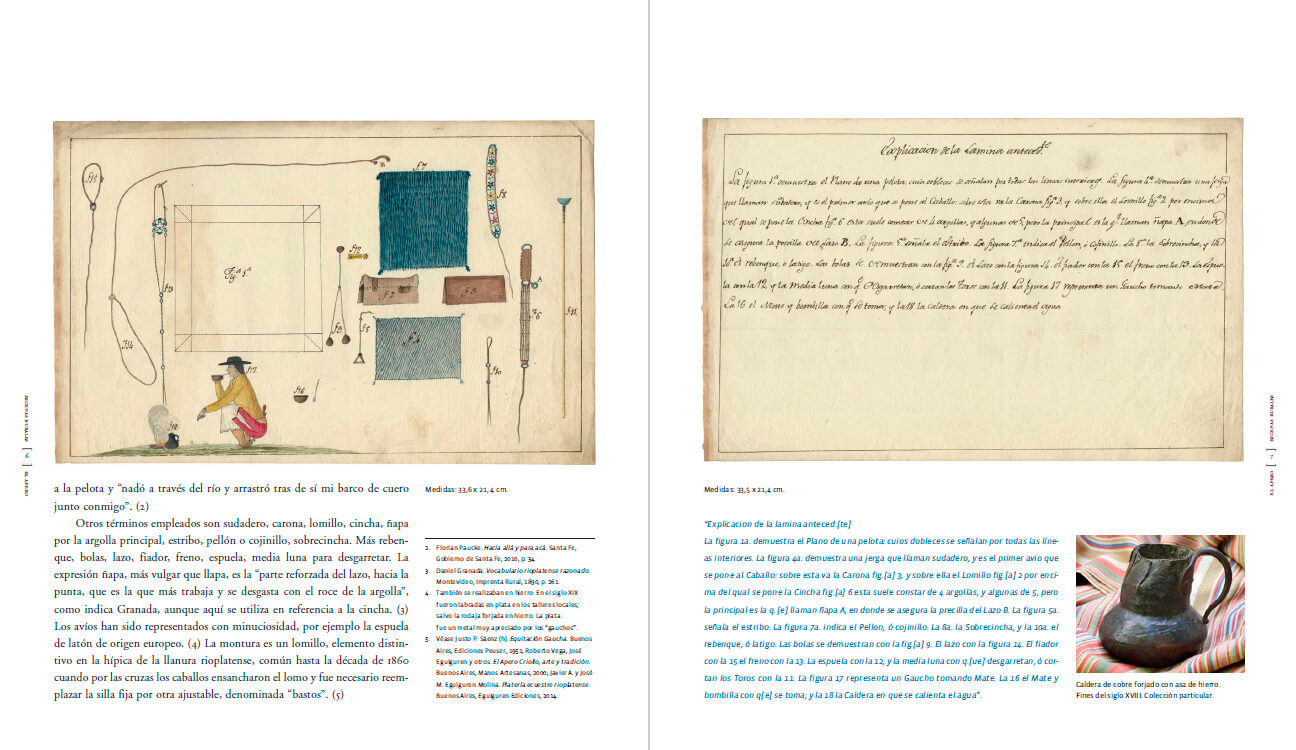 fª 15
B
f 7
f 8
Fª 1ª
f 13
f 12
f 2
f 3
A
f 6
f 11
f 14
f 9
f 5
f 4
f 10
f 17
f 16
f 18
6
a la pelota y “nadó a través del río y arrastró tras de sí mi barco de cuero
junto conmigo”. (2)
Otros términos empleados son sudadero, carona, lomillo, cincha, ñapa
por la argolla principal, estribo, pellón o cojinillo, sobrecincha. Más reben-
que, bolas, lazo, fiador, freno, espuela, media luna para desgarretar. La
expresión ñapa, más vulgar que llapa, es la “parte reforzada del lazo, hacia la
punta, que es la que más trabaja y se desgasta con el roce de la argolla”,
como indica Granada, aunque aquí se utiliza en referencia a la cincha. (3)
Los avíos han sido representados con minuciosidad, por ejemplo la espuela
de latón de origen europeo. (4) La montura es un lomillo, elemento distin-
tivo en la hípica de la llanura rioplatense, común hasta la década de 1860
cuando por las cruzas los caballos ensancharon el lomo y fue necesario reem-
plazar la silla fija por otra ajustable, denominada “bastos”. (5)
Medidas: 33,6 x 21,4 cm.
2. Florian Paucke. Hacia allá y para acá. Santa Fe,
Gobierno de Santa Fe, 2010, p. 34.
3. Daniel Granada. Vocabulario rioplatense razonado.
Montevideo, Imprenta Rural, 1890, p. 261.
4. También se realizaban en hierro. En el siglo XIX
fueron labradas en plata en los talleres locales,
salvo la rodaja forjada en hierro. La plata
fue un metal muy apreciado por los “gauchos”.
5. Véase Justo P. Sáenz (h). Equitación Gaucha. Buenos
Aires, Ediciones Peuser, 1951; Roberto Vega, José
Eguiguren y otros. El Apero Criollo, arte y tradición.
Buenos Aires, Manos Artesanas, 2000; Javier A. y José
M. Eguiguren Molina. Platería ecuestre rioplatense.
Buenos Aires, Eguiguren Ediciones, 2014.
Explicacion de la Lamina anteced.te
La figura 1ª demuestra el Plano de una pelota, cuios dobleces se señalan por todas las lineas interiores. La figura 4ª demuestra una jerga
que llaman sudadero, y es el primer avio que se pone al Caballo: sobre esta va la Carona figª 3, y sobre ella el Lomillo figª 2 por encima
del qual se pone la Cincha figª 6 esta suele constar de 4 argollas, y algunas de 5, pero la principal es la q.e llaman ñapa A, en donde
se asegura la presilla del Lazo B. La figura 5ª señala el Estribo. La figura 7ª indica el Pellon, ó Cojinillo. La 8ª la Sobrecincha, y la
10ª el rebenque, ó latigo. Las bolas se demuestran con la figª 9. el Lazo con la figura 14. el fiador con la 15 el freno con la 13. La espue-
la con la 12, y la media luna con q.e desgarretan, ó cortan los Toros con la 11. La figura 17 representa un Gaucho tomando Mate.
La 16 el Mate y bombilla con q.e se toma; y la 18 la Caldera en que se calienta el agua
Medidas: 33,5 x 21,4 cm.
“Explicacion de la lamina anteced.[te]
La figura 1a. demuestra el Plano de una pelota: cuios dobleces se señalan por todas las line-
as interiores. La figura 4a. demuestra una jerga que llaman sudadero, y es el primer avio que
se pone al Caballo: sobre esta va la Carona fig.[a] 3, y sobre ella el Lomillo fig.[a] 2 por enci-
ma del qual se pone la Cincha fig.[a] 6 esta suele constar de 4 argollas, y algunas de 5, pero
la principal es la q.[e] llaman ñapa A, en donde se asegura la precilla del Lazo B. La figura 5a.
señala el estribo. La figura 7a. indica el Pellon, ó cojinillo. La 8a. la Sobrecincha, y la 10a. el
rebenque, ó latigo. Las bolas se demuestran con la fig.[a] 9. El lazo con la figura 14. El fiador
con la 15 el freno con la 13. La espuela con la 12, y la media luna con q.[ue] desgarretan, ó cor-
tan los Toros con la 11. La figura 17 representa un Gaucho tomando Mate. La 16 el Mate y
bombilla con q[e] se toma; y la 18 la Caldera en que se calienta el agua”.
Caldera de cobre forjado con asa de hierro.
Fines del siglo XVIII. Colección particular.
EL APERO [ 7 ] ESCENAS RURALES